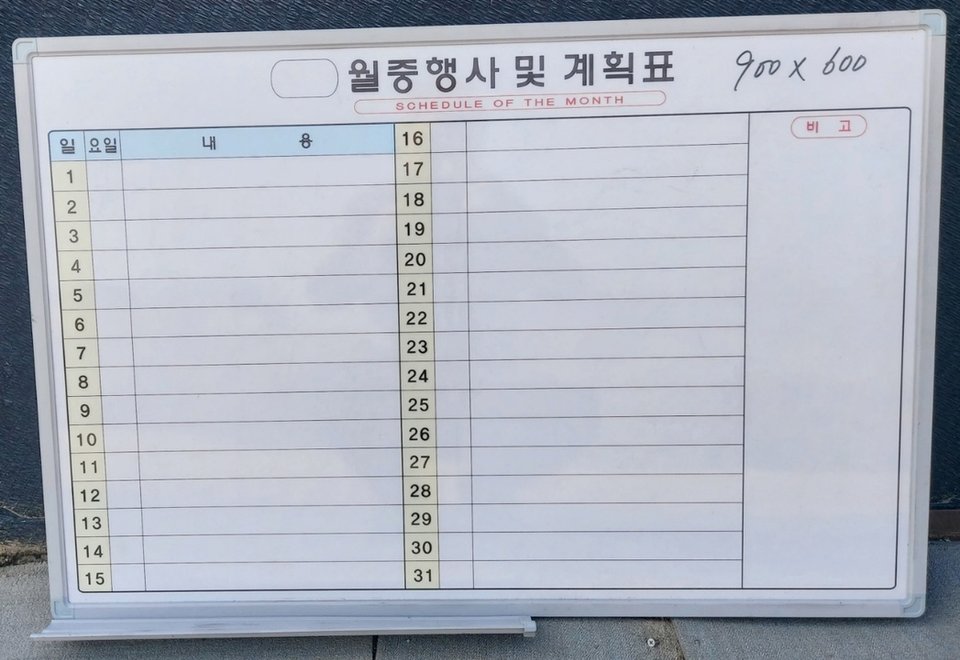 월중행사 및 계획표 900 x 600
SCHEDULE OF THE MONTH
일 요일 내 용
1
2
3
4
5
6
7
8
9
10
11
12
13
14
15
16
17
18
19
20
21
22
23
24
25
26
27
28
29
30
31
비 고